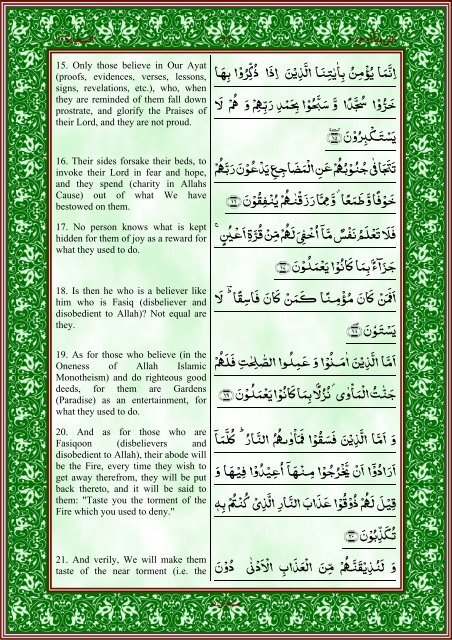 15. Only those believe in Our Ayat
(proofs, evidences, verses, lessons,
signs, revelations, etc.), who, when
they are reminded of them fall down
prostrate, and glorify the Praises of
their Lord, and they are not proud.
اِنَّمَا يُؤْمِنُ بِاٰيٰتِنَا الَّذِيْنَ اِذَا ذُكِّرُوْا بِهَا
خَرُّوْا سُجَّدًا وَّ سَبَّحُوْا بِحَمْدِ رَبِّهِمْ وَ هُمْ لَا
يَسْتَكْبِرُوْنَ
16. Their sides forsake their beds, to
invoke their Lord in fear and hope,
and they spend (charity in Allahs
Cause) out of what We have
bestowed on them.
تَتَجَافٰى جُنُوْبُهُمْ عَنِ الْمَضَاجِعِ يَدْعُوْنَ رَبَّهُمْ
خَوْفًا وَّ طَمَعًا وَّ مِمَّا رَزَقْنٰهُمْ يُنْفِقُوْنَ ﴿۱۶﴾
17. No person knows what is kept
hidden for them of joy as a reward for
what they used to do.
فَلَا تَعْلَمُ نَفْسٌ مَّاۤ اُخْفِيَ لَهُمْ مِّنْ قُرَّةِ اَعْيُنٍ ۚ
جَزَآءًۢ بِمَا كَانُوْا يَعْمَلُوْنَ ﴿۱۷﴾
18. Is then he who is a believer like
him who is Fasiq (disbeliever and
disobedient to Allah)? Not equal are
they.
اَفَمَنْ كَانَ مُؤْمِنًا كَمَنْ كَانَ فَاسِقًا ؕ لَا
يَسْتَوٗنَ
19. As for those who believe (in the
Oneness of Allah Islamic
Monotheism) and do righteous good
deeds, for them are Gardens
(Paradise) as an entertainment, for
what they used to do.
اَمَّا الَّذِيْنَ اٰمَنُوْا وَ عَمِلُوا الصّٰلِحٰتِ فَلَهُمْ
جَنّٰتُ الْمَاْوٰى نُزُلًۢا بِمَا كَانُوْا يَعْمَلُوْنَ ﴿۱۹﴾
20. And as for those who are
Fasiqoon (disbelievers and
disobedient to Allah), their abode will
be the Fire, every time they wish to
get away therefrom, they will be put
back thereto, and it will be said to
them: "Taste you the torment of the
Fire which you used to deny."
وَ اَمَّا الَّذِيْنَ فَسَقُوْا فَمَاْوٰىهُمُ النَّارُ ؕ كُلَّمَاۤ
اَرَادُوْۤا اَنْ يَّخْرُجُوْا مِنْهَاۤ اُعِيْدُوْا فِيْهَا وَ
قِيْلَ لَهُمْ ذُوْقُوْا عَذَابَ النَّارِ الَّذِيْ كُنْتُمْ بِهٖ
تُكَذِّبُوْنَ ﴿۲۰﴾
21. And verily, We will make them
taste of the near torment (i.e. the
وَ لَنُذِيْقَنَّهُمْ مِّنَ الْعَذَابِ الْاَدْنٰى دُوْنَ